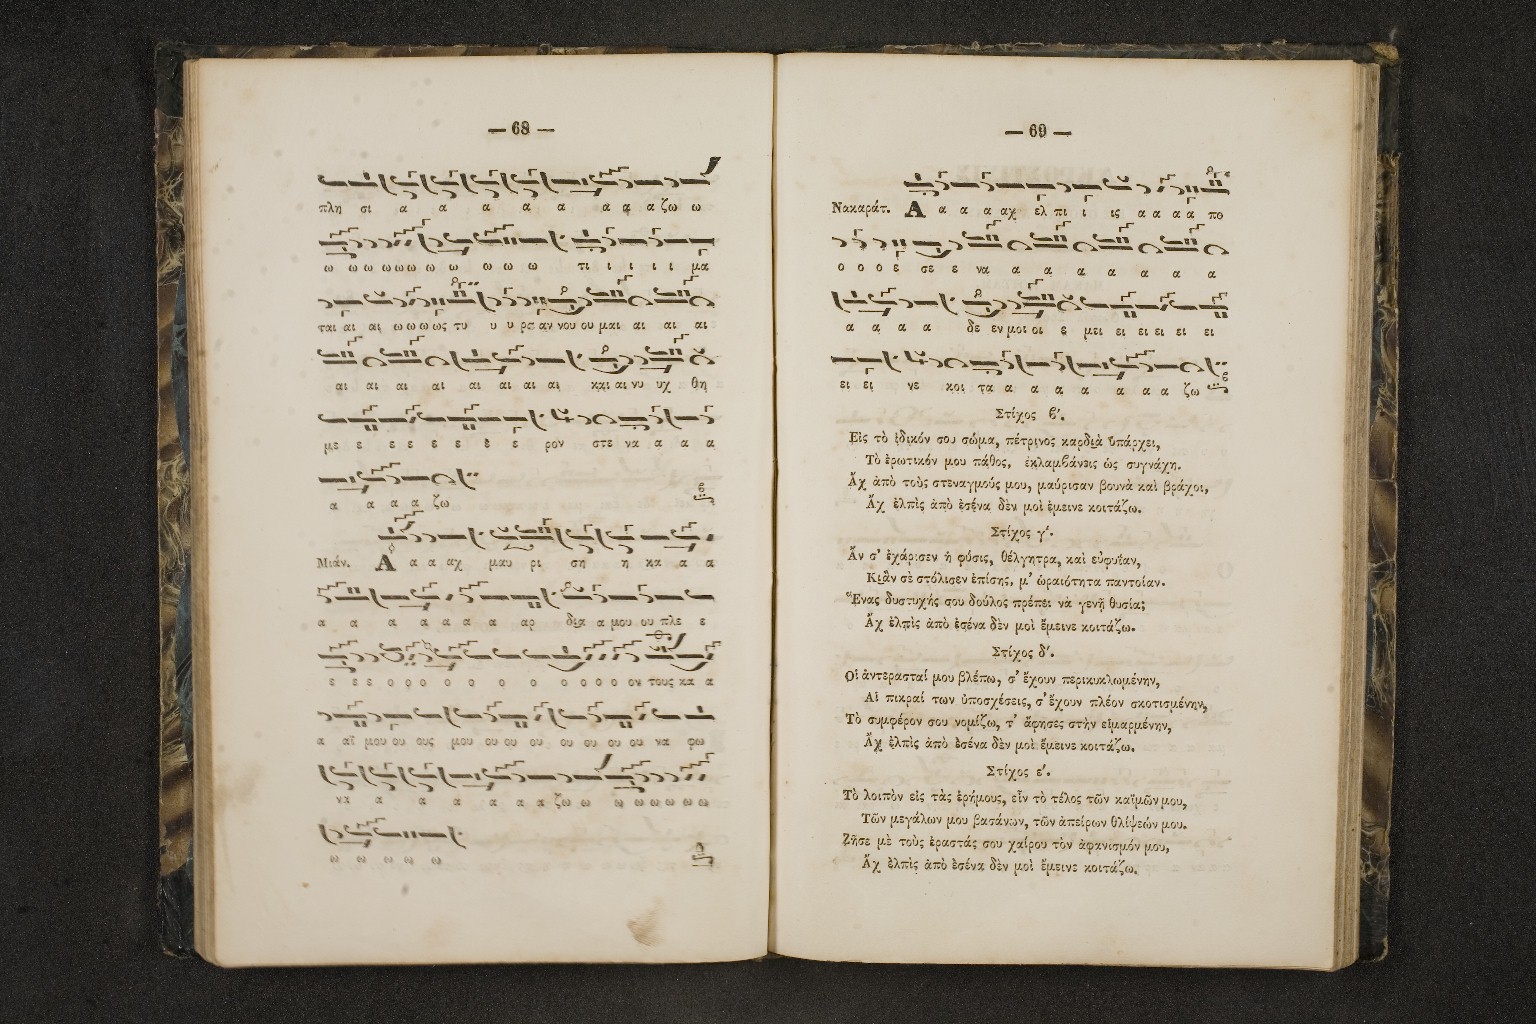 — 68 —
πλη σι α α α α α α α α ζω ω
ω ω ω ω ω ω ω ω ω ω ω τι ι ι ι ι μα
ται αι αι ω ω ω ως τυ υ υ ραν νου ου μαι αι αι αι
αι αι αι αι αι αι αι αι και αι νυ υχ θη
με ε ε ε ε ε ε ε ρον στε να α α α
α α α α ζω
Μιάν. Α α α αχ μαυ ρι ση η κα α α
α α α α α α α αρ δια α μου ου πλε ε
ε ε ε ο ο ο ο ο ο ο ο ο ο ον τους κα α
α αϊ μου ου ους μου ου ου ου ου ου ου ου να φω
να α α α α α α ζω ω ω ω ω ω ω
ω ω ω ω ω
— 69 —
Νακαράτ. Α α α α αχ ελ πι ι ις α α α α πο
ο ο ο ε σε ε να α α α α α α α
α α α α δε εν μοι οι ε μει ει ει ει ει ει
ει ει νε κοι τα α α α α α α α ζω
Στίχος β'.
Εἰς τὸ ἰδικόν σου σῶμα, πέτρινος καρδιὰ ὑπάρχει,
Τὸ ἐρωτικόν μου πάθος, ἐκλαμβάνεις ὡς συγνάχη.
Ἄχ ἀπὸ τοὺς στεναγμούς μου, μαύρισαν βουνὰ καὶ βράχοι,
Ἄχ ἐλπὶς ἀπὸ ἐσένα δὲν μοὶ ἔμεινε κοιτάζω.
Στίχος γ'.
Ἄν σ' ἐχάρισεν ἡ φύσις, θέλγητρα, καὶ εὐφυΐαν,
Κιἂν σὲ στόλισεν ἐπίσης, μ' ὡραιότητα παντοίαν.
Ἕνας δυστυχής σου δούλος πρέπει νὰ γενῇ θυσία;
Ἄχ ἐλπὶς ἀπὸ ἐσένα δὲν μοὶ ἔμεινε κοιτάζω.
Στίχος δ'.
Οἱ ἀντερασταί μου βλέπω, σ' ἔχουν περικυκλωμένην,
Αἱ πικραί των ὑποσχέσεις, σ' ἔχουν πλέον σκοτισμένην,
Τὸ συμφέρον σου νομίζω, τ' ἄφησες στὴν εἱμαρμένην,
Ἄχ ἐλπὶς ἀπὸ ἐσένα δὲν μοὶ ἔμεινε κοιτάζω.
Στίχος ε'.
Τὸ λοιπὸν εἰς τὰς ἐρήμους, εἶν τὸ τέλος τῶν καϊμῶν μου,
Τῶν μεγάλων μου βασάνων, τῶν ἀπείρων θλίψεών μου.
Ζῆσε μὲ τοὺς ἐραστάς σου χαίρου τὸν ἀφανισμόν μου,
Ἄχ ἐλπὶς ἀπὸ ἐσένα δὲν μοὶ ἔμεινε κοιτάζω.